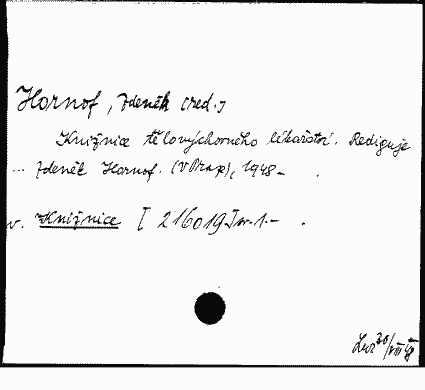 Hornof, Zdeněk (red.)
Knižnice tělovýchovného lékařství. Rediguje
... Zdeněk Hornof. (V Praze), 1948 -
v. Knižnice [216019] sv. 1. -
20/VIII 48